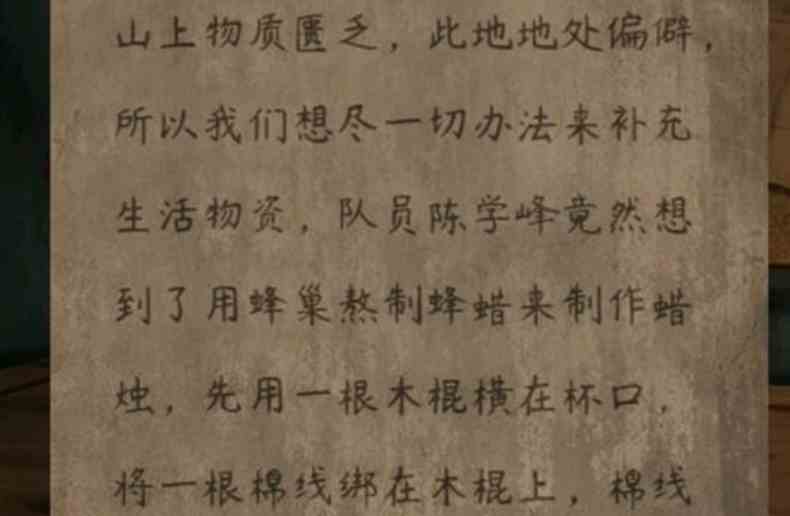 山上物质匮乏，此地地处偏僻，
所以我们想尽一切办法来补充
生活物资，队员陈学峰竟然想
到了用蜂巢熬制蜂蜡来制作蜡
烛，先用一根木棍横在杯口，
将一根棉线绑在木棍上，棉线